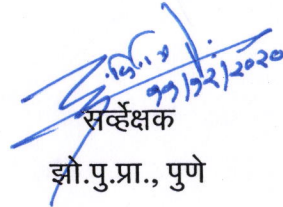 ११/१२/२०२०
सर्व्हेक्षक
झो.पु.प्रा., पुणे